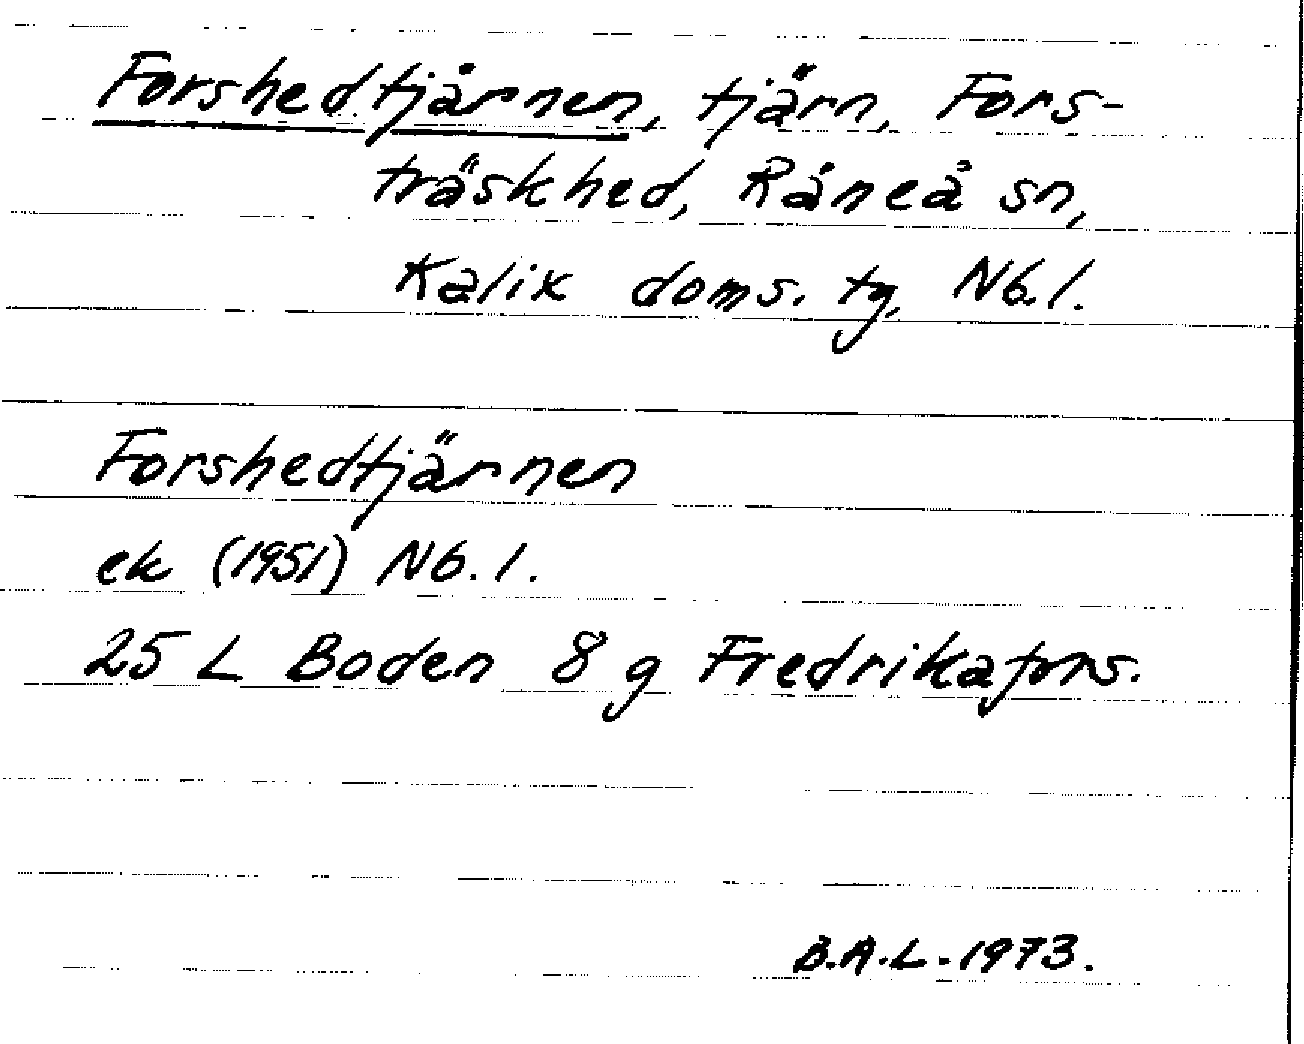 Forshedtjärnen, tjärn, Fors-
träskhed, Råneå sn,
Kalix doms. tg, Nb.l.
Forshedtjärnen
ek (1951) Nb.l.
25 L Boden 8 g Fredrikafors.
B.A.L. 1973.